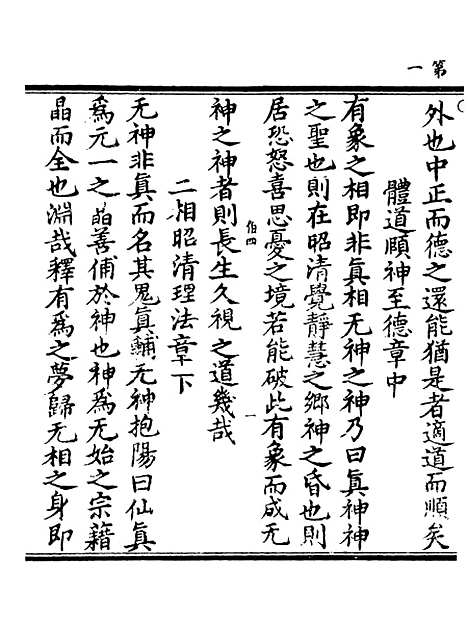 第一
外也中正而德之還能猶是者適道而順矣
體道頤神至德章中
有象之相即非真相无神之神乃曰真神神
之聖也則在昭清覺靜慧之鄉神之昏也則
居恐怒喜思憂之境若能破此有象而成无
伯四
一
神之神者則長生久視之道幾哉
二相昭清理法章下
无神非真而名其鬼真輔元神抱陽曰仙真
爲元一之晶善俌於神也神爲无始之宗藉
晶而全也淵哉釋有爲之夢歸无相之身即